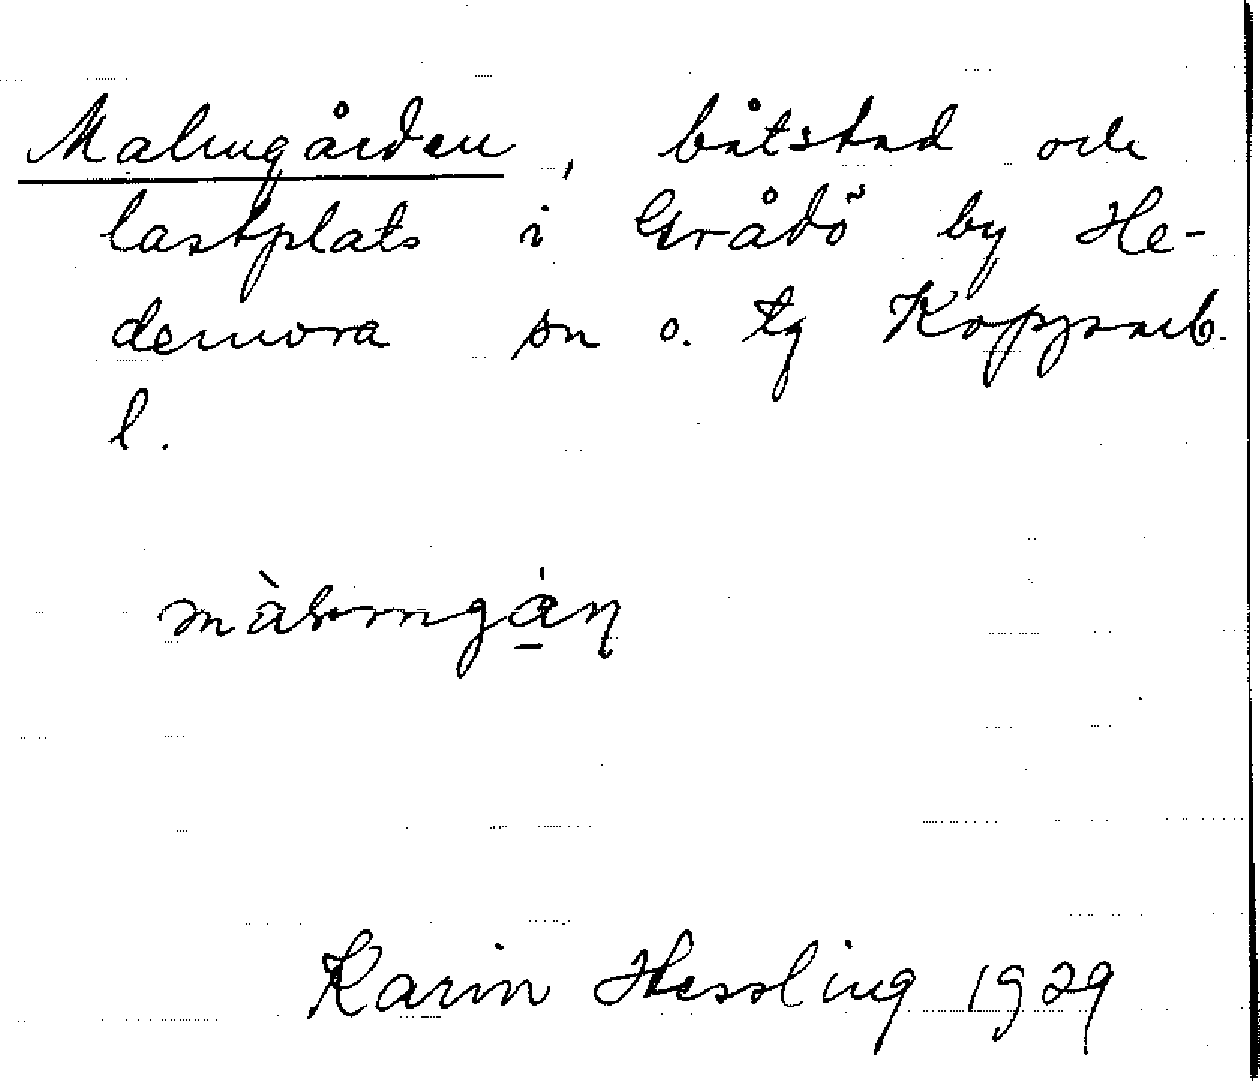 Malmgården, båtstad och
lastplats i Grådö by He-
demora sn o. tg Kopparb.
l.
Karin Hessling 1929